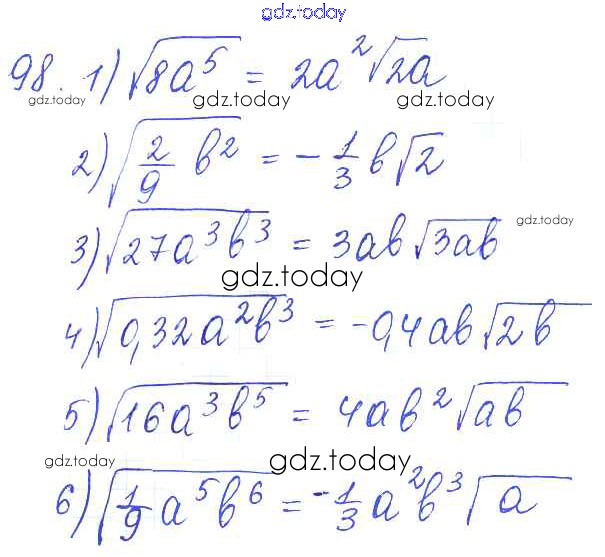 gdz.today
98. 1) √(8a⁵) = 2a²√(2a)
gdz.today gdz.today gdz.today
2) √(2/9 b²) = -1/3 b√2
3) √(27a³b³) = 3ab√(3ab)
gdz.today
gdz.today
4) √(0,32a²b³) = -0,4ab√(2b)
5) √(16a³b⁵) = 4ab²√(ab)
gdz.today gdz.today
6) √(1/9 a⁵b⁶) = -1/3 a²b³√a